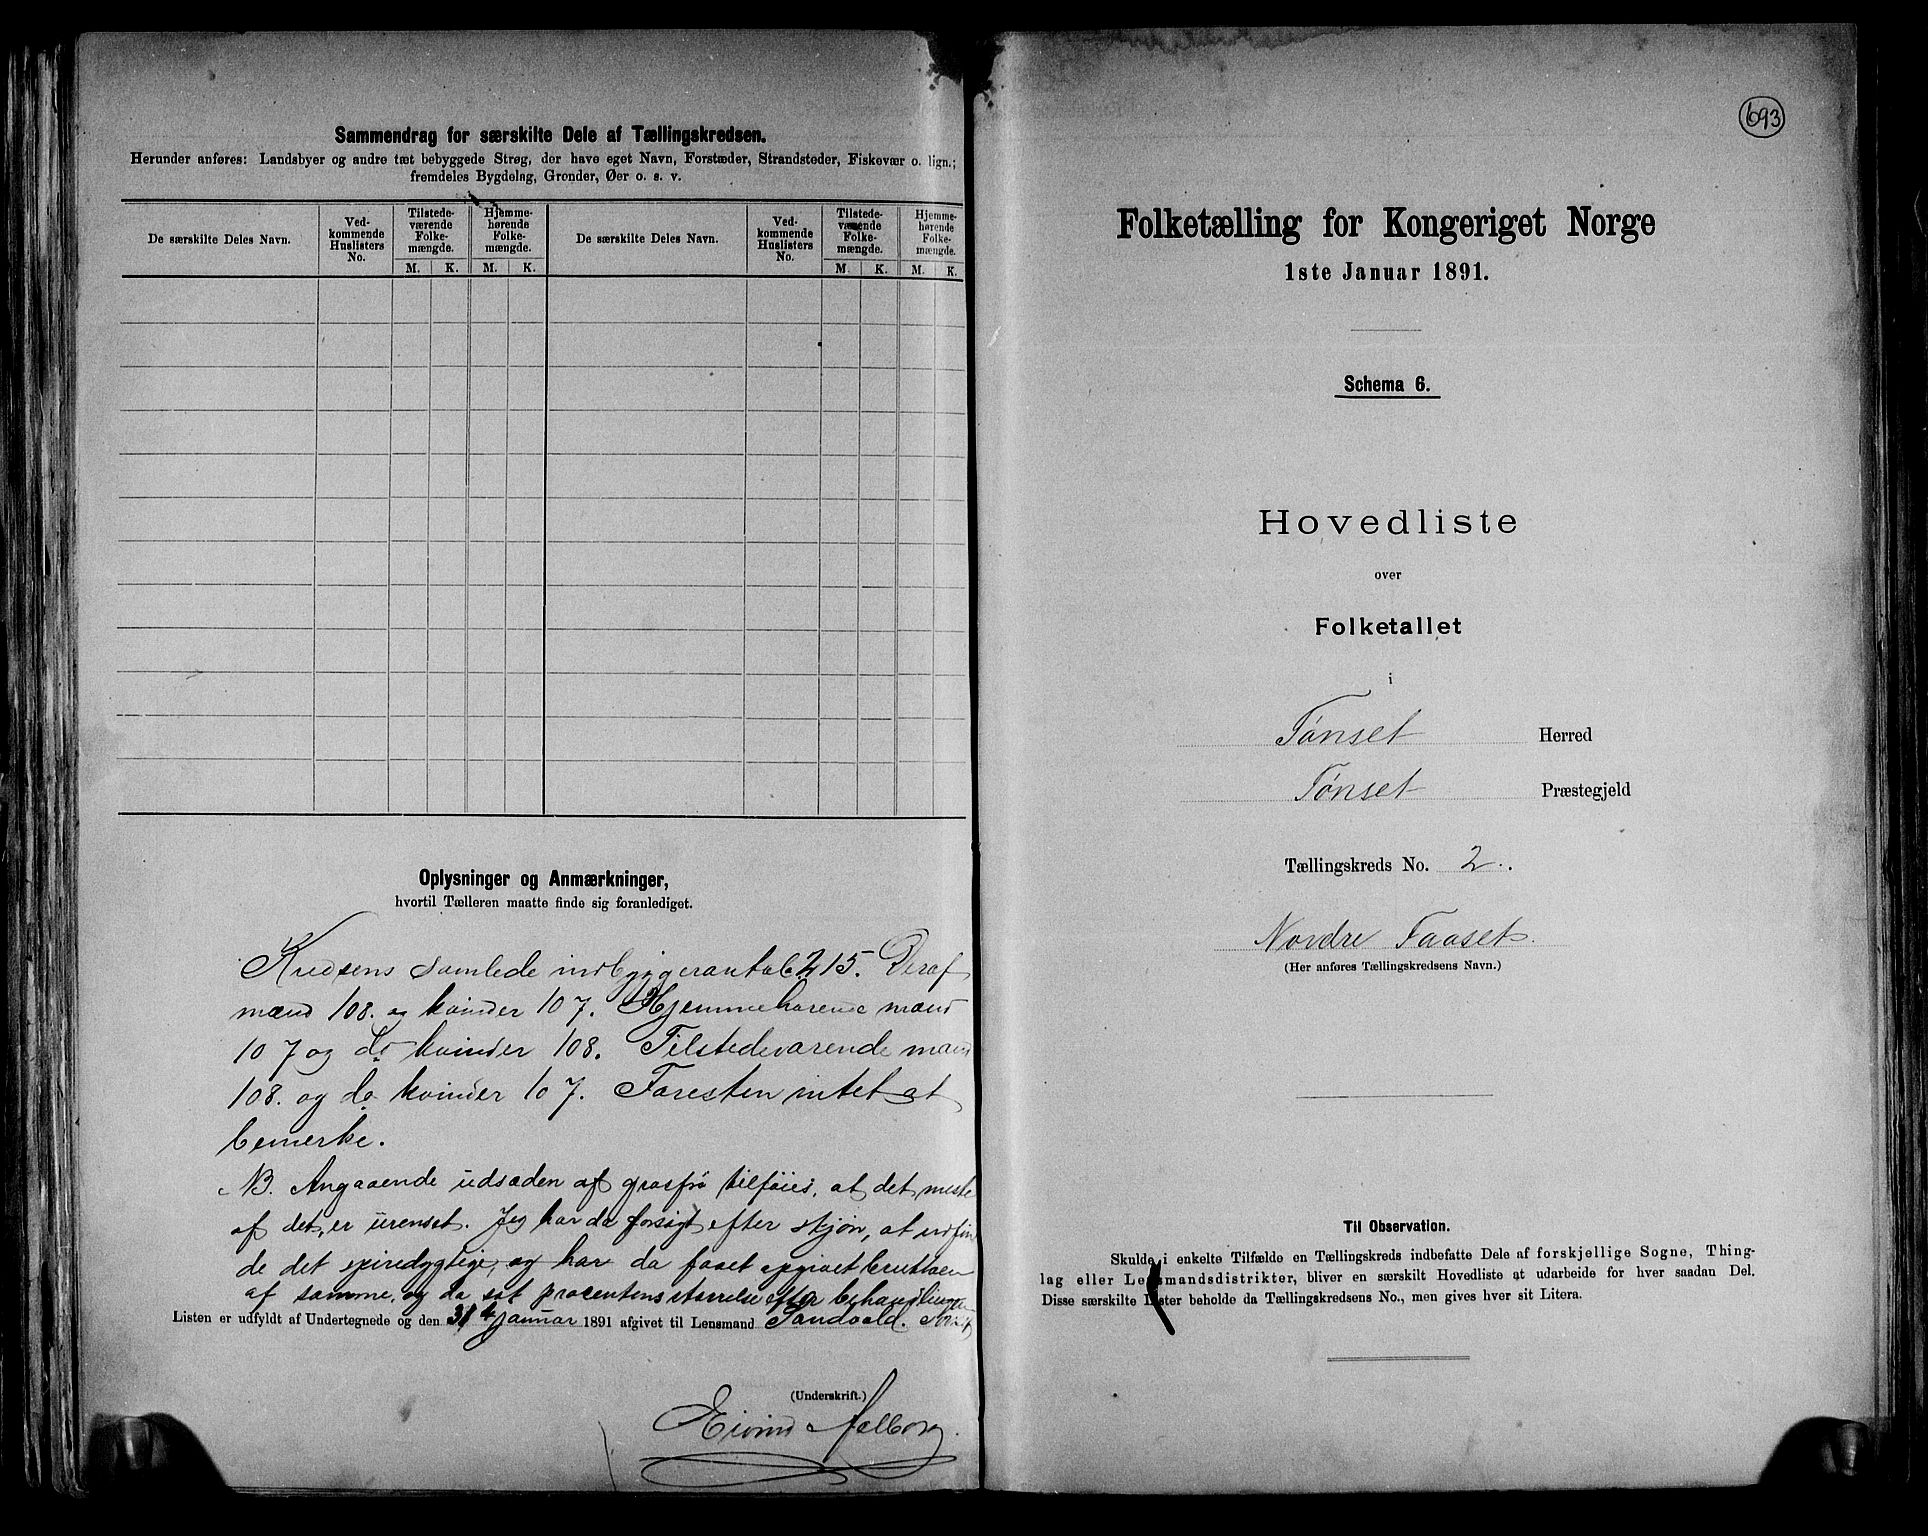 Sammendrag for særskilte Dele af Tællingskredsen.
Herunder anføres: Landsbyer og andre tæt bebyggede Strøg, der have eget Navn, Forstæder, Strandsteder, Fiskevær o. lign.;
fremdeles Bygdelag, Grender, Øer o. s. v.
De særskilte Deles Navn.
Ved-
kommende
Huslisters
No.
Tilstede-
værende
Folke-
mængde.
Hjemme-
hørende
Folke-
mængde.
De særskilte Deles Navn.
Ved-
kommende
Huslisters
No.
Tilstede-
værende
Folke-
mængde.
Hjemme-
hørende
Folke-
mængde.
M. K. M. K. M. K. M. K.
Oplysninger og Anmærkninger,
hvortil Tælleren maatte finde sig foranlediget.
Kredsens samlede indbyggerantal 215. Deraf
mænd 108. og kvinder 107. Hjemmehørende mænd
107 og do kvinder 108. Tilstedeværende mænd
108. og do kvinder 107. Foresten intet at
bemerke.
NB. Angaaende udsæden af græsfrø tilføies, at det meste
af det, er urenset. Jeg har da forsøgt efter skjøn, at udfin
de det spiredygtige, og har da faaet opgivet
af samme, og da sat procentens størrelse efter behandlingen
Listen er udfyldt af Undertegnede og den 31te januar 1891 afgivet til Lensmand Sandvold.
(Underskrift.)
Eivind Aalborg.
693
Folketælling for Kongeriget Norge
1ste Januar 1891.
Schema 6.
Hovedliste
over
Folketallet
i
Tønset Herred
Tønset Præstegjeld
Tællingskreds No. 2.
Nordre Faaset.
(Her anføres Tællingskredsens Navn.)
Til Observation.
Skulde i enkelte Tilfælde en Tællingskreds indbefatte Dele af forskjellige Sogne, Thing-
lag eller Lensmandsdistrikter, bliver en særskilt Hovedliste at udarbeide for hver saadan Del.
Disse særskilte Lister beholde da Tællingskredsens No., men gives hver sit Litera.